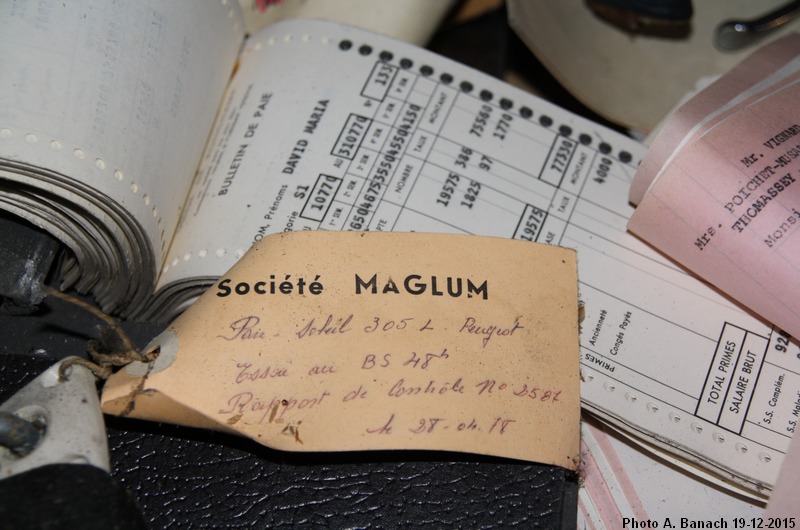 BULLETIN DE PAIE
DAVID MARIA
OM, Prénoms
égorie S1
10770
AU 310770
N° 133
NOMBRE
TAUX
MONTANT
19575 386 75560
1825 97 1770
19575
TAUX
77330
MONTANT
4000
PRIMES
Ancienneté
Congés Payés
TOTAL PRIMES
SALAIRE BRUT
S.S. Complém.
Mr. VIGNE
Mrs. POICHET-MUSA
THOMASSEY
Monsi
Société MAGLUM
Pare-soleil 305 L Peugeot
Essai au BS 48h
Rapport de Contrôle N° 2587
le 28-04.78
Photo A. Banach 19-12-2015